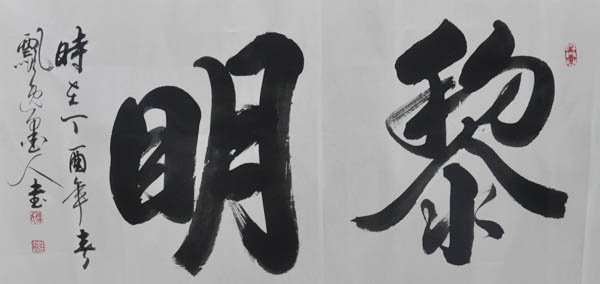 黎明
時在丁酉年春
飄逸墨人書